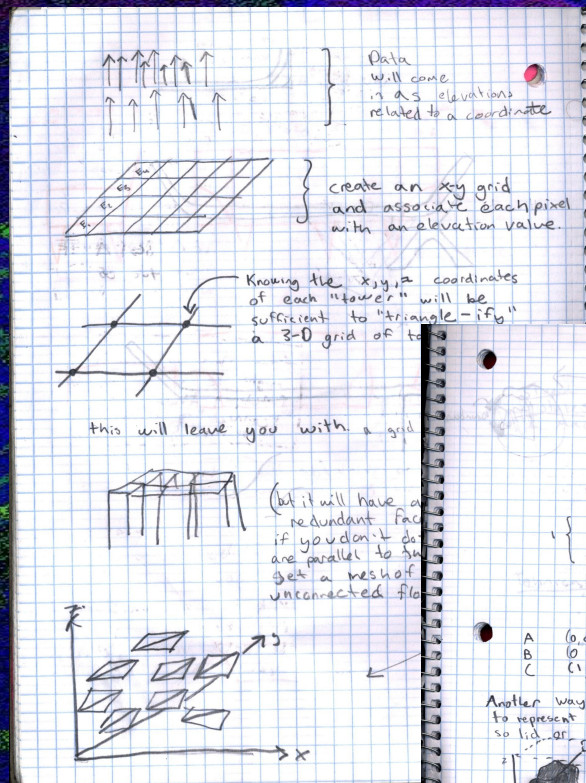 Data
will come
in as elevations
related to a coordinate
E4
E3
E2
E1
create an x-y grid
and associate each pixel
with an elevation value.
Knowing the x,y,z coordinates
of each "tower" will be
sufficient to "triangle-ify"
a 3-D grid of to
this will leave you with a grid
(but it will have a
redundant fac
if you don't do
are parallel to th
get a mesh of
unconnected flo
x
1
A (0,
B (0
C (1
Another way
to represent
solid or
z